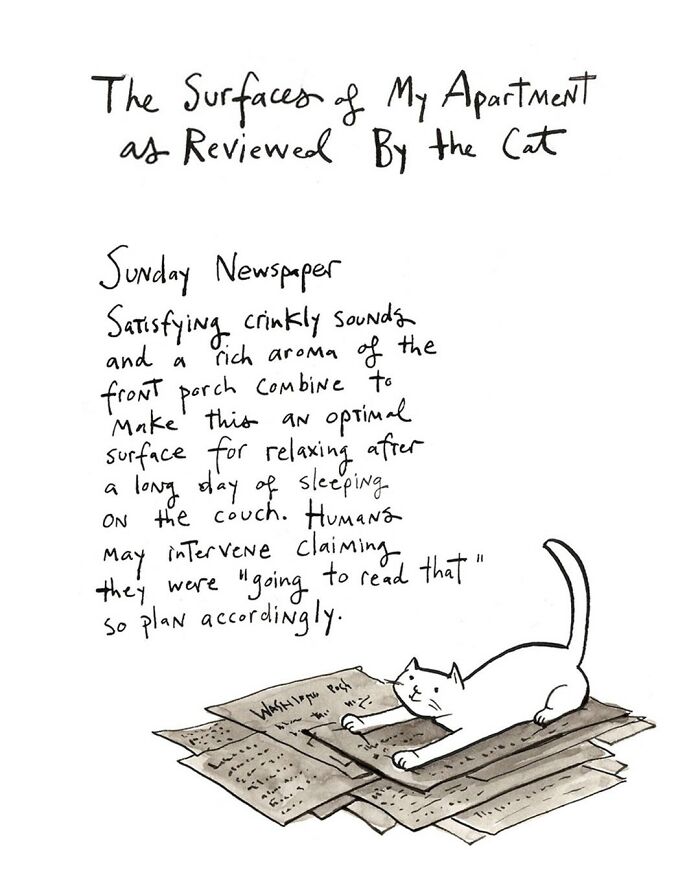 The Surfaces of My Apartment
as Reviewed By the Cat
Sunday Newspaper
Satisfying crinkly sounds
and a rich aroma of the
front porch combine to
make this an optimal
surface for relaxing after
a long day of sleeping
on the couch. Humans
may intervene claiming
they were "going to read that"
so plan accordingly.
Washington Post